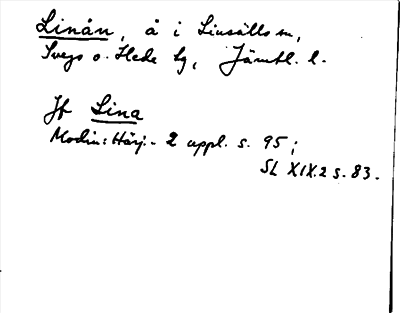 Linån, å i Linsälls sn,
Svegs o. Hede tg, Jämtl. l.
Jf Lina
Modin: Härj. 2 uppl. s. 95;
SL XIX.2 s. 83.